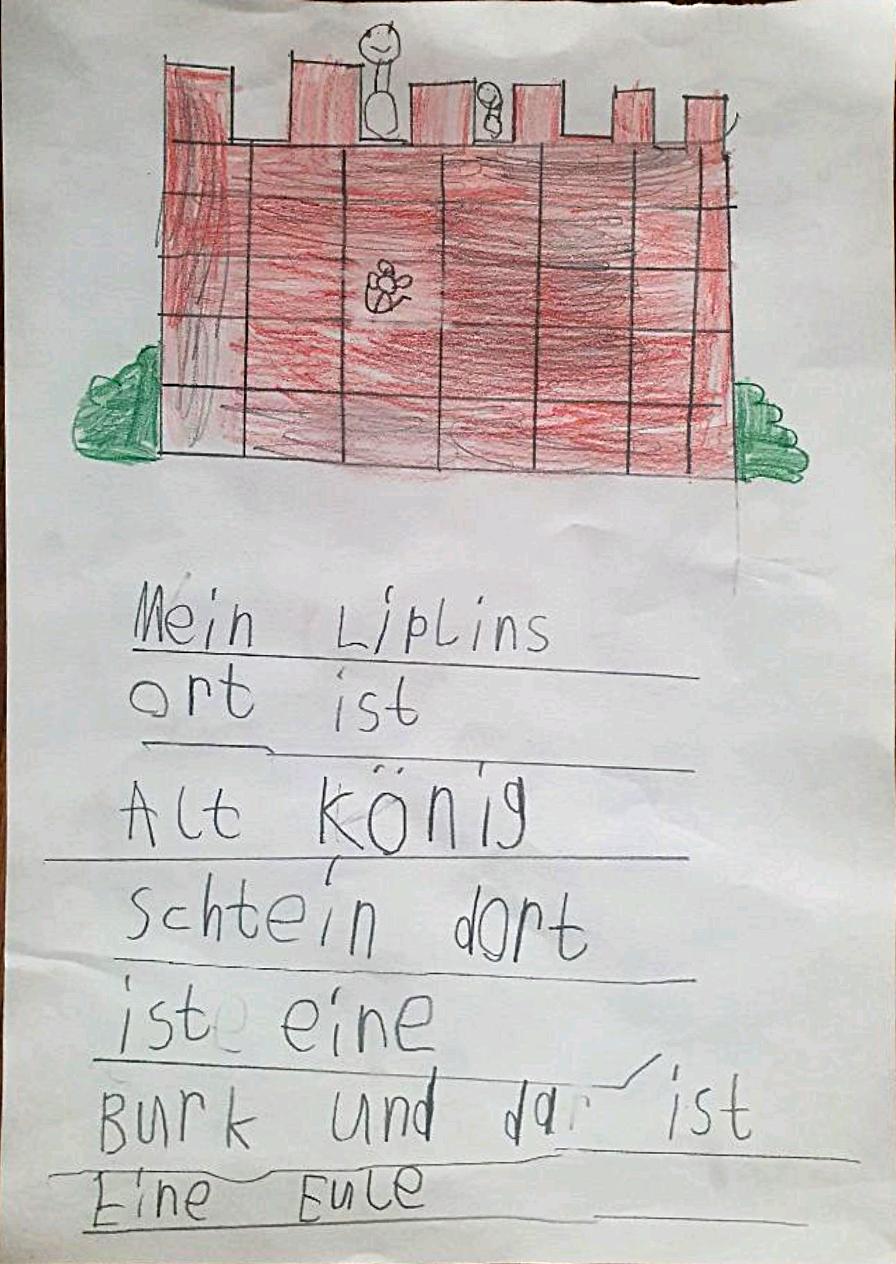 Mein Liplins
ort ist
Alt könig
schtein dort
ist eine
Burk und da ist
Eine Eule